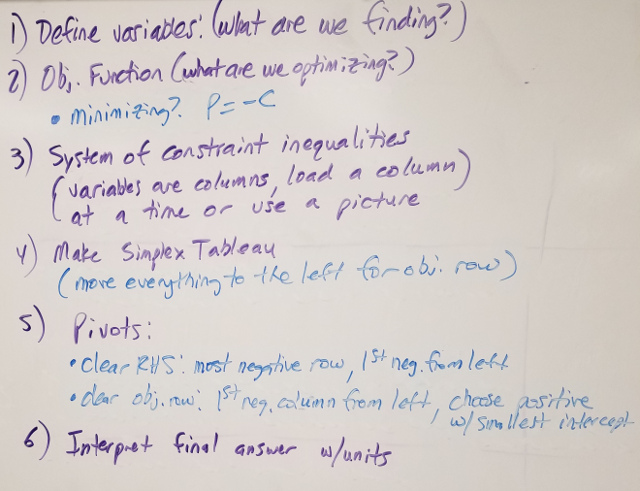 1) Define variables: (what are we finding?)
2) Obj. Function (what are we optimizing?)
• minimizing? P = -C
3) System of constraint inequalities
(variables are columns, load a column)
at a time or use a picture
4) Make Simplex Tableau
(move everything to the left for obj. row)
5) Pivots:
• clear RHS: most negative row, 1st neg. from left
• clear obj. row: 1st neg. column from left, choose positive
w/ smallest intercept
6) Interpret final answer w/units